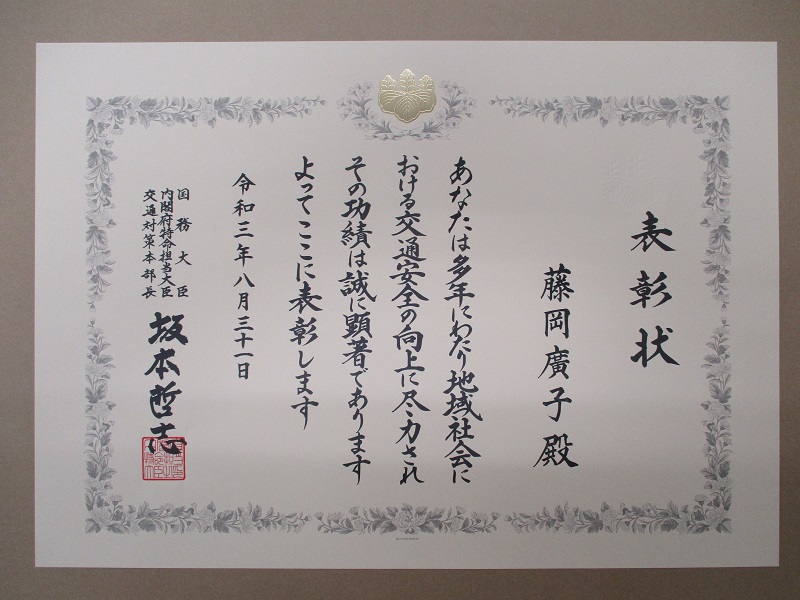 表彰状
藤岡廣子殿
あなたは多年にわたり地域社会に
おける交通安全の向上に尽力され
その功績は誠に顕著であります
よってここに表彰します
令和三年八月三十一日
国務大臣
内閣府特命担当大臣
交通対策本部長
坂本哲志